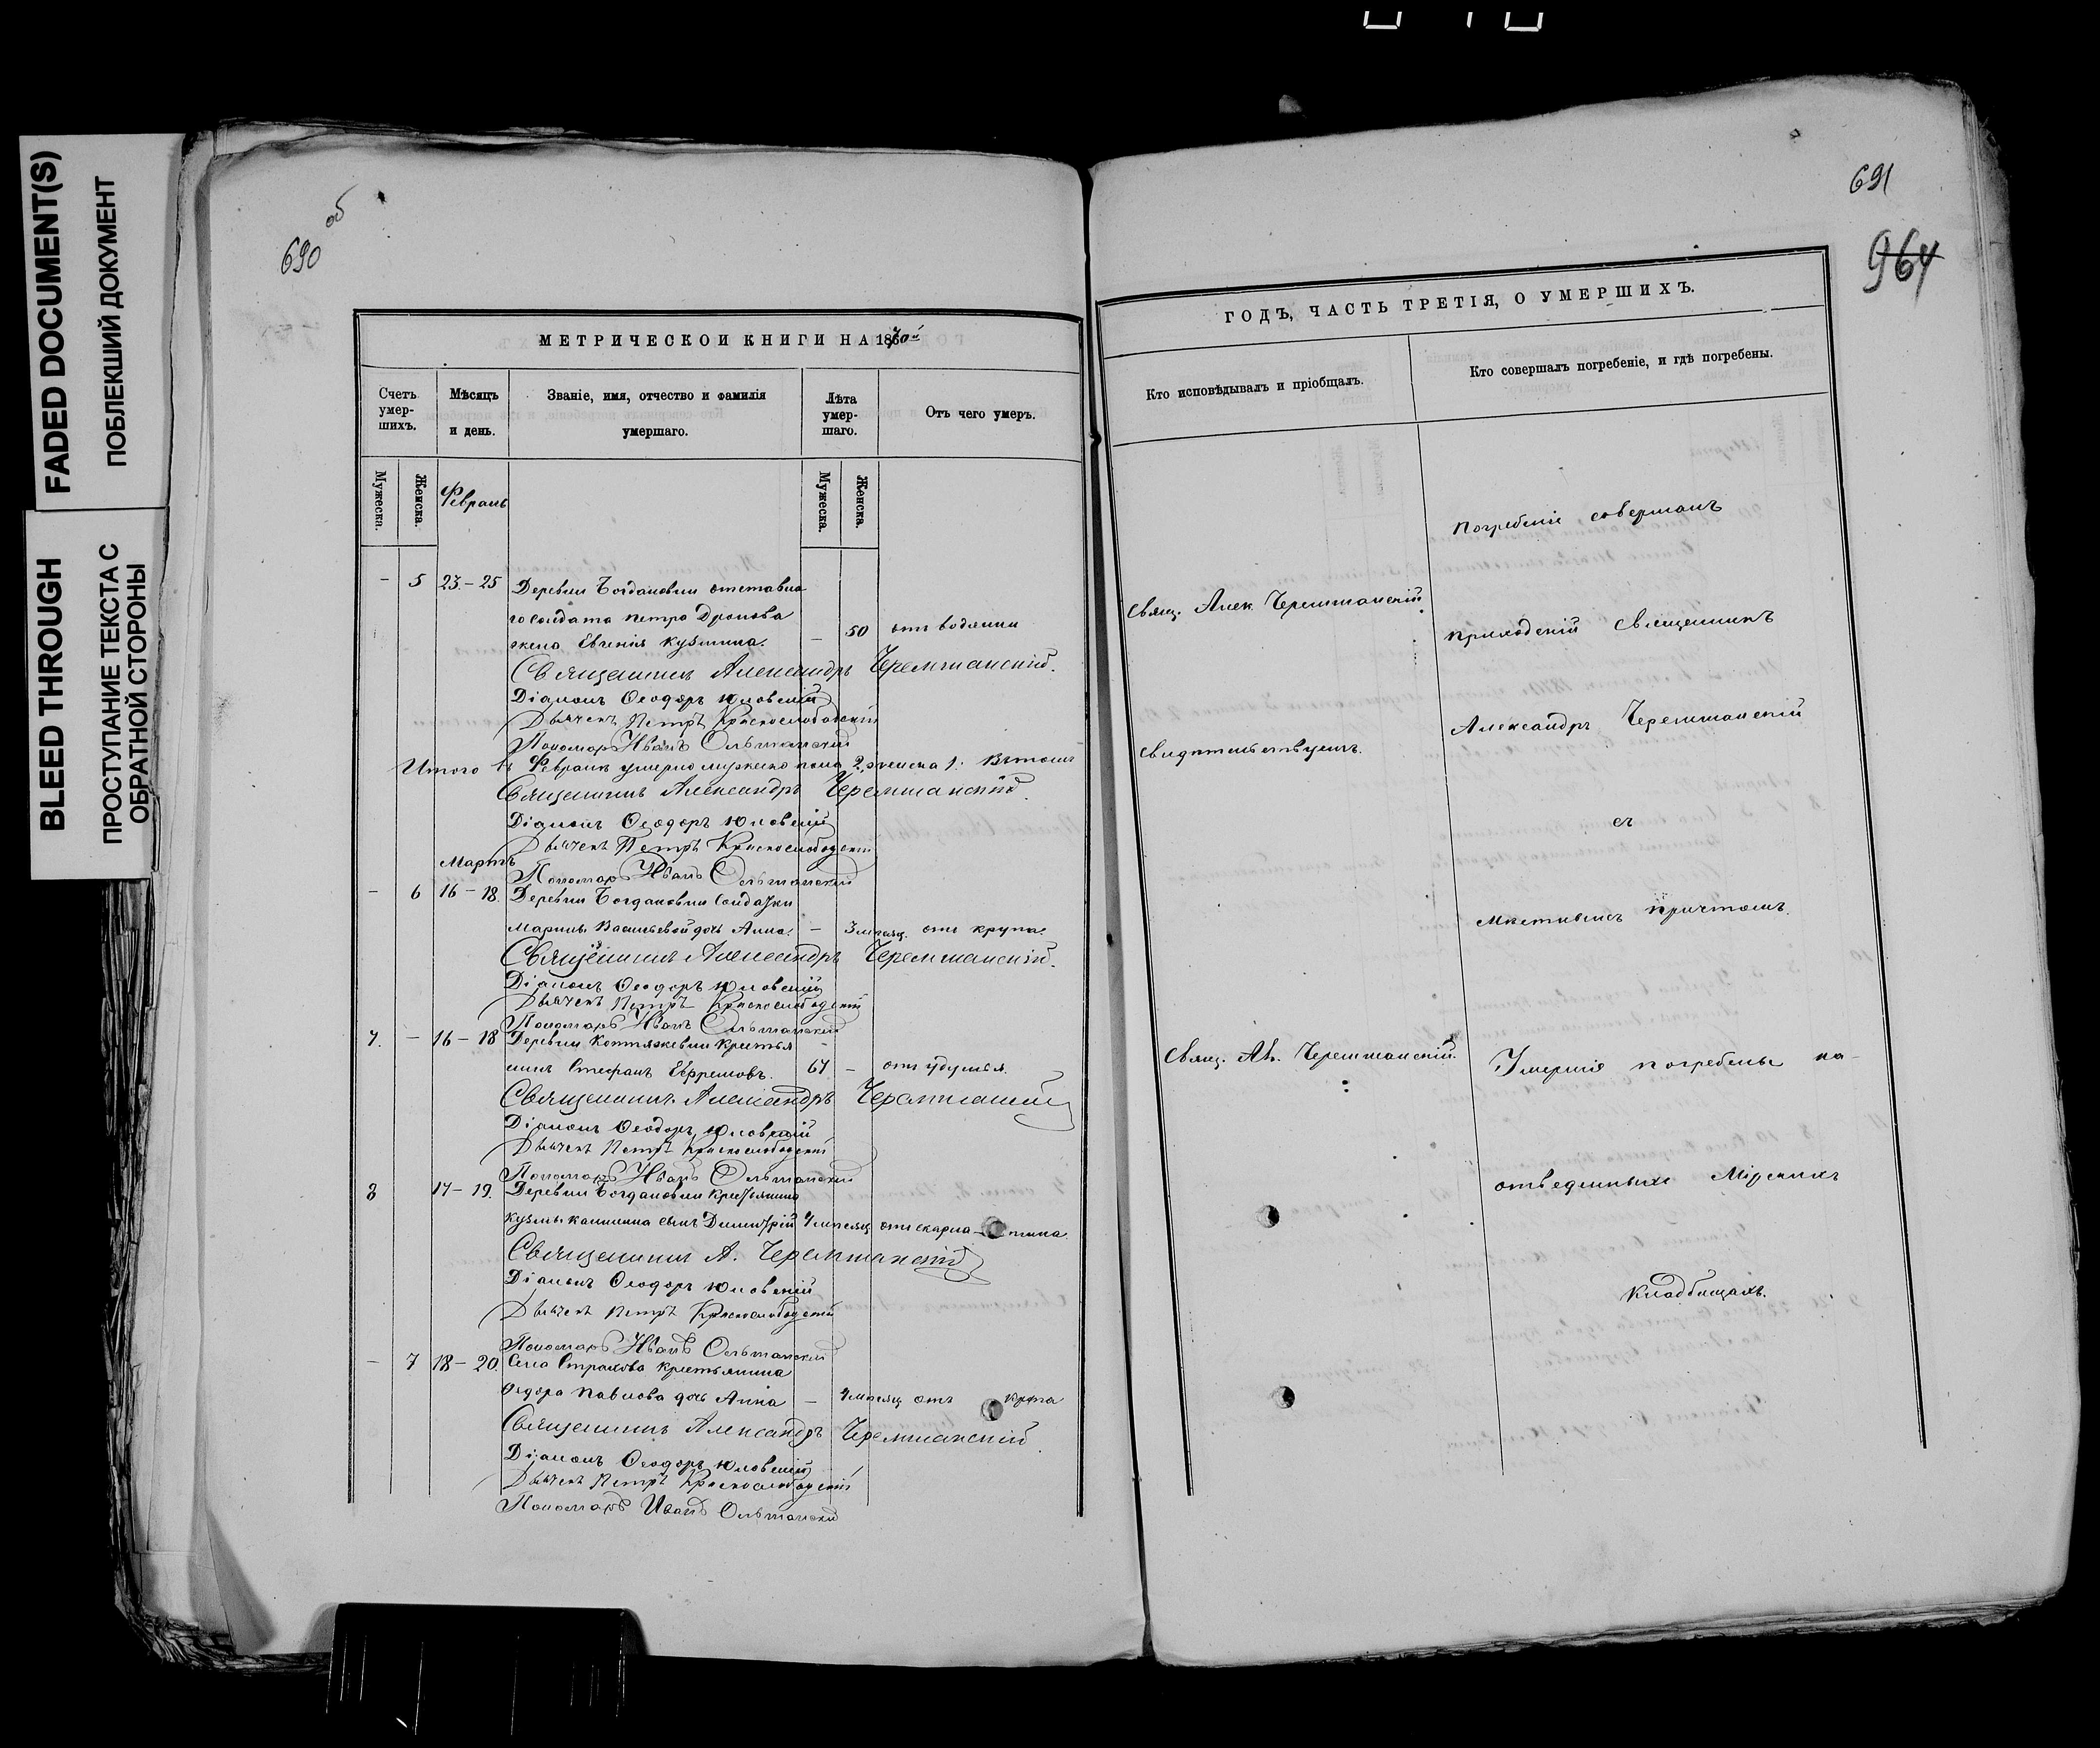 FADED DOCUMENT(S)
ПОБЛЕКШИЙ ДОКУМЕНТ
BLEED THROUGH
ПРОСТУПАНИЕ ТЕКСТА С
ОБРАТНОЙ СТОРОНЫ
690 об
МЕТРИЧЕСКОЙ КНИГИ НА 1870й
Счетъ умер-шихъ.
Мѣсяцъ и день.
Званіе, имя, отчество и фамилія умершаго.
Лѣта умер-шаго.
Отъ чего умеръ.
Мужеска. Женска. Февраль Мужеска. Женска.
- 5 23-25 Деревни Богдановки отставно
го солдата Петра Дронова
жена Евгенія Кузьмина. - 50 отъ водянки
Священникъ Александръ Черемшанскій.
Діаконъ Ѳеодоръ Юловскій
Дьячекъ Петръ Краснослободскій
Пономарь Иванъ Ольшанскій
Итого въ Февралѣ умерло мужеска пола 2, женска 1. Въ томъ
Священникъ Александръ Черемшанскій.
Діаконъ Ѳеодоръ Юловскій
Дьячекъ Петръ Краснослободскій
Мартъ
Пономарь Иванъ Ольшанскій
- 6 16-18. Деревни Богдановки Солдатки
Марины Васильевой дочь Анна. - 3 мѣсяц. отъ крупа.
Священникъ Александръ Черемшанскій.
Діаконъ Ѳеодоръ Юловскій
Дьячекъ Петръ Краснослободскій
Пономарь Иванъ Ольшанскій
7. - 16-18 Деревни крестья
нинъ Стефанъ Ефремовъ. 67 - отъ удушья.
Священникъ Александръ Черемшанскій
Діаконъ Ѳеодоръ Юловскій
Дьячекъ Петръ Краснослободскій
Пономарь Иванъ Ольшанскій
8 17-19. Деревни Богдановки крестьянина
Кузьмы сынъ Димитрій 4 мѣсяц отъ скарла-тина.
Священникъ А. Черемшанскій
Діаконъ Ѳеодоръ Юловскій
Дьячекъ Петръ Краснослободскій
Пономарь Иванъ Ольшанскій
- 7 18-20. Села Страхова крестьянина
Ѳедора Павлова дочь Анна - 4 мѣсяц отъ
Священникъ Александръ Черемшанскій.
Діаконъ Ѳеодоръ Юловскій
Дьячекъ Петръ Краснослободскій
Пономарь Иванъ Ольшанскій
691
964
ГОДЪ, ЧАСТЬ ТРЕТІЯ, О УМЕРШИХЪ.
Кто исповѣдывалъ и пріобщалъ.
Кто совершалъ погребеніе, и гдѣ погребены.
Погребеніе совершалъ
Свящ. Алек. Черемшанскій.
приходскій Священникъ
Александръ Черемшанскій
свидѣтельствуемъ.
съ
мѣстнымъ причтомъ.
Свящ. Ал. Черемшанскій.
Умершіе погребены на
отведенныхъ Мірскихъ
кладбищахъ.